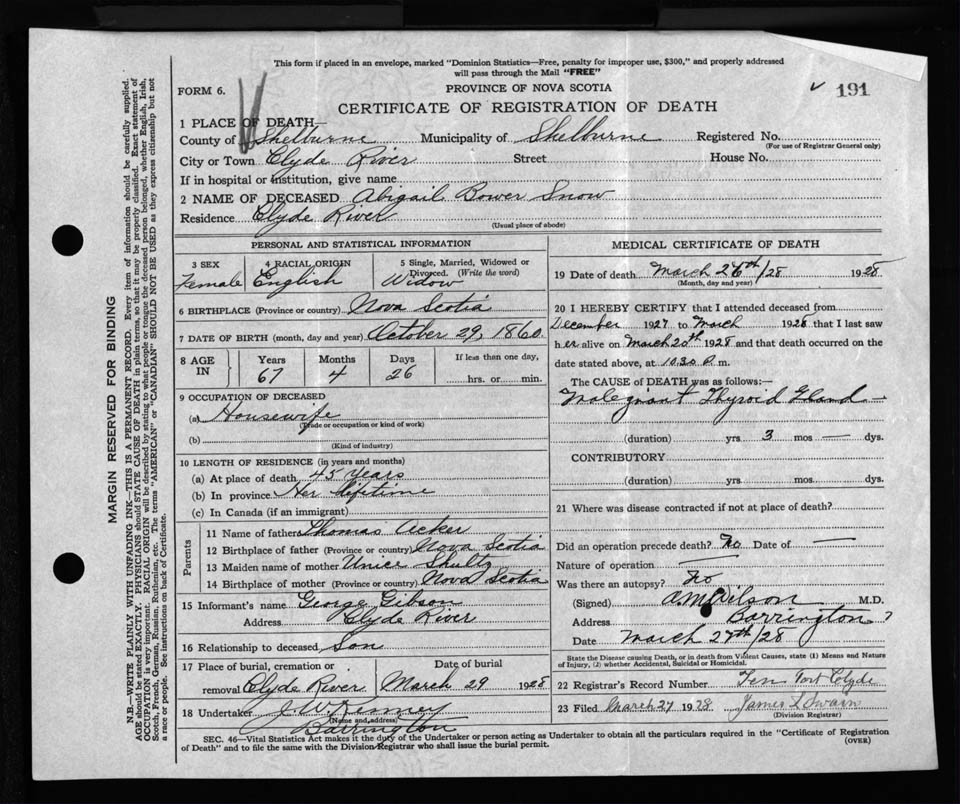 This form if placed in an envelope, marked "Dominion Statistics—Free, penalty for improper use, $300," and properly addressed
will pass through the Mail "FREE"
FORM 6.
PROVINCE OF NOVA SCOTIA
191
CERTIFICATE OF REGISTRATION OF DEATH
1 PLACE OF DEATH—
County of Shelburne Municipality of Shelburne Registered No.
(For use of Registrar General only)
City or Town Clyde River Street House No.
If in hospital or institution, give name
2 NAME OF DECEASED Abigail Bower Snow
Residence Clyde River
(Usual place of abode)
PERSONAL AND STATISTICAL INFORMATION
3 SEX 4 RACIAL ORIGIN 5 Single, Married, Widowed or
Divorced. (Write the word)
Female English Widow
6 BIRTHPLACE (Province or country) Nova Scotia
7 DATE OF BIRTH (month, day and year) October 29, 1860
8 AGE IN Years Months Days If less than one day,
67 4 26 hrs. or min.
9 OCCUPATION OF DECEASED
(a) Housewife
(Trade or occupation or kind of work)
(b)
(Kind of industry)
10 LENGTH OF RESIDENCE (in years and months)
(a) At place of death 45 years
(b) In province Her lifetime
(c) In Canada (if an immigrant)
Parents
11 Name of father Thomas Acker
12 Birthplace of father (Province or country) Nova Scotia
13 Maiden name of mother Unice Shultz
14 Birthplace of mother (Province or country) Nova Scotia
15 Informant's name George Gibson
Address Clyde River
16 Relationship to deceased Son
17 Place of burial, cremation or Date of burial
removal Clyde River March 29 1928
18 Undertaker J. W. Kenney
(Name and address)
Barrington
MEDICAL CERTIFICATE OF DEATH
19 Date of death March 26th/28 1928
(Month, day and year)
20 I HEREBY CERTIFY that I attended deceased from
December 1927 to March 1928 that I last saw
her alive on March 20th 1928 and that death occurred on the
date stated above, at 10.30 P.m.
The CAUSE of DEATH was as follows:—
Malegnant Thyroid Gland —
(duration) yrs 3 mos — dys.
CONTRIBUTORY
(duration) yrs. mos. dys.
21 Where was disease contracted if not at place of death?
Did an operation precede death? No Date of —
Nature of operation —
Was there an autopsy? No
(Signed) A M Wilson M.D.
Address Barrington
Date March 27th/28
State the Disease causing Death, or in death from Violent Causes, state (1) Means and Nature
of Injury, (2) whether Accidental, Suicidal or Homicidal.
22 Registrar's Record Number Ten Port Clyde
23 Filed March 27 1928 James L Swain
(Division Registrar)
SEC. 46—Vital Statistics Act makes it the duty of the Undertaker or person acting as Undertaker to obtain all the particulars required in the "Certificate of Registration
of Death" and to file the same with the Division Registrar who shall issue the burial permit.
(OVER)
MARGIN RESERVED FOR BINDING
N.B.—WRITE PLAINLY WITH UNFADING INK—THIS IS A PERMANENT RECORD. Every item of information should be carefully supplied.
AGE should be stated EXACTLY. PHYSICIANS should STATE CAUSE OF DEATH in plain terms, so that it may be properly classified. Exact statement of
OCCUPATION is very important. RACIAL ORIGIN will be described by stating to what people or tongue the deceased person belonged, whether English, Irish,
Scotch, French, German, Russian, Ruthenian, etc. The terms "AMERICAN" or "CANADIAN" SHOULD NOT BE USED as they express citizenship but not
a race or people. See instructions on back of Certificate.